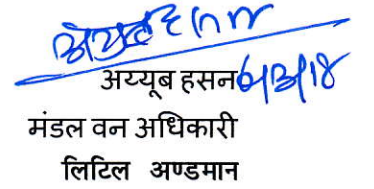 अय्यूब हसन
मंडल वन अधिकारी
लिटिल अण्डमान